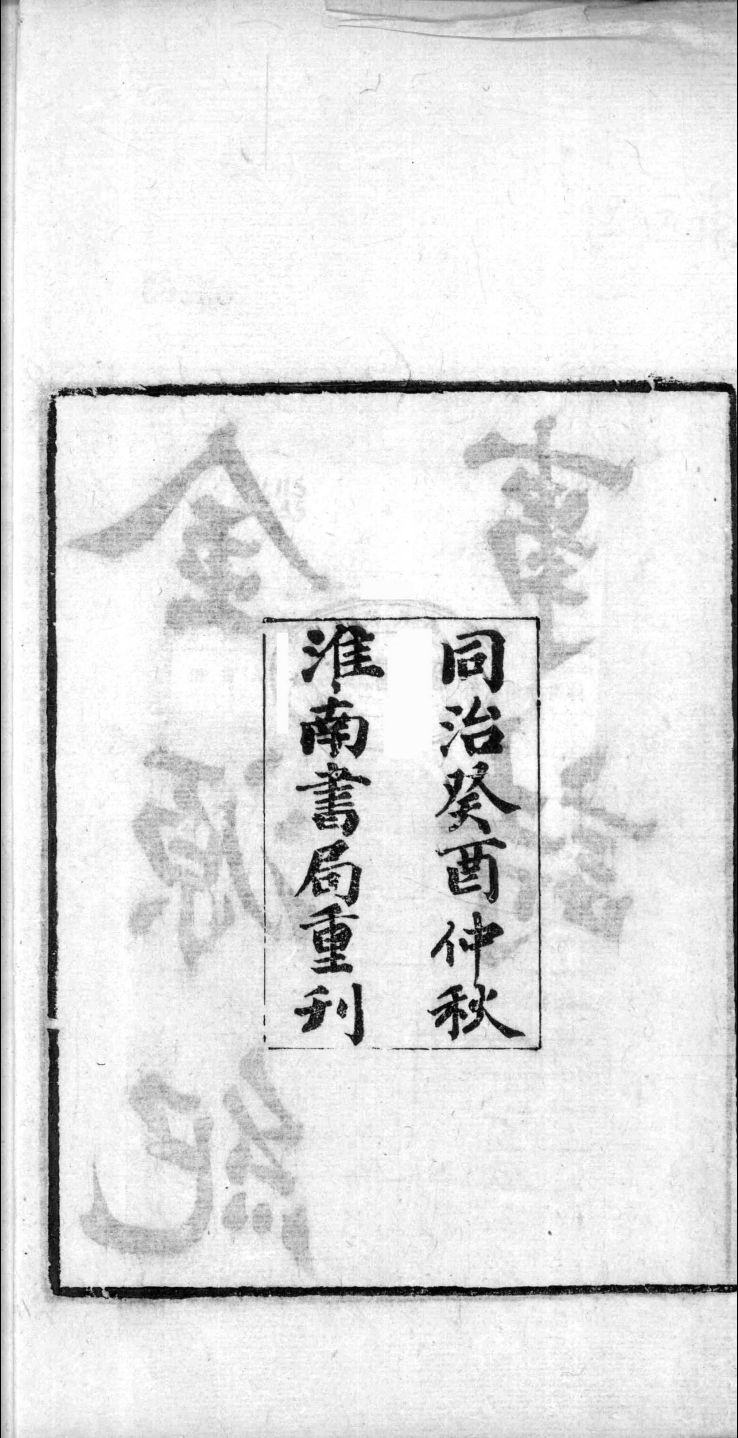 同治癸酉仲秋
淮南書局重刊